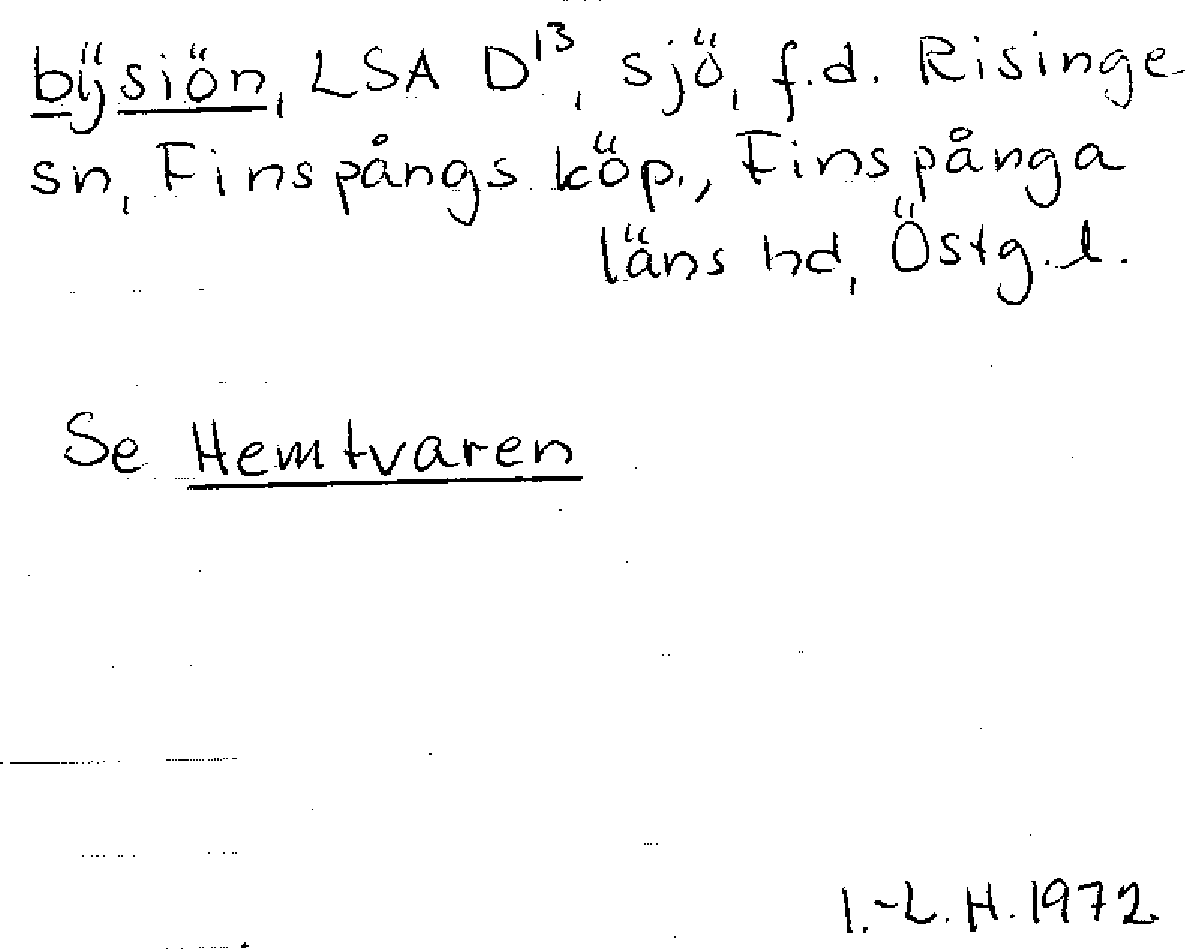 bijsiön, LSA D¹³, sjö, f.d. Risinge
sn, Finspångs köp., Finspånga
läns hd, Östg. l.
Se Hemtvaren
I.-L. H. 1972